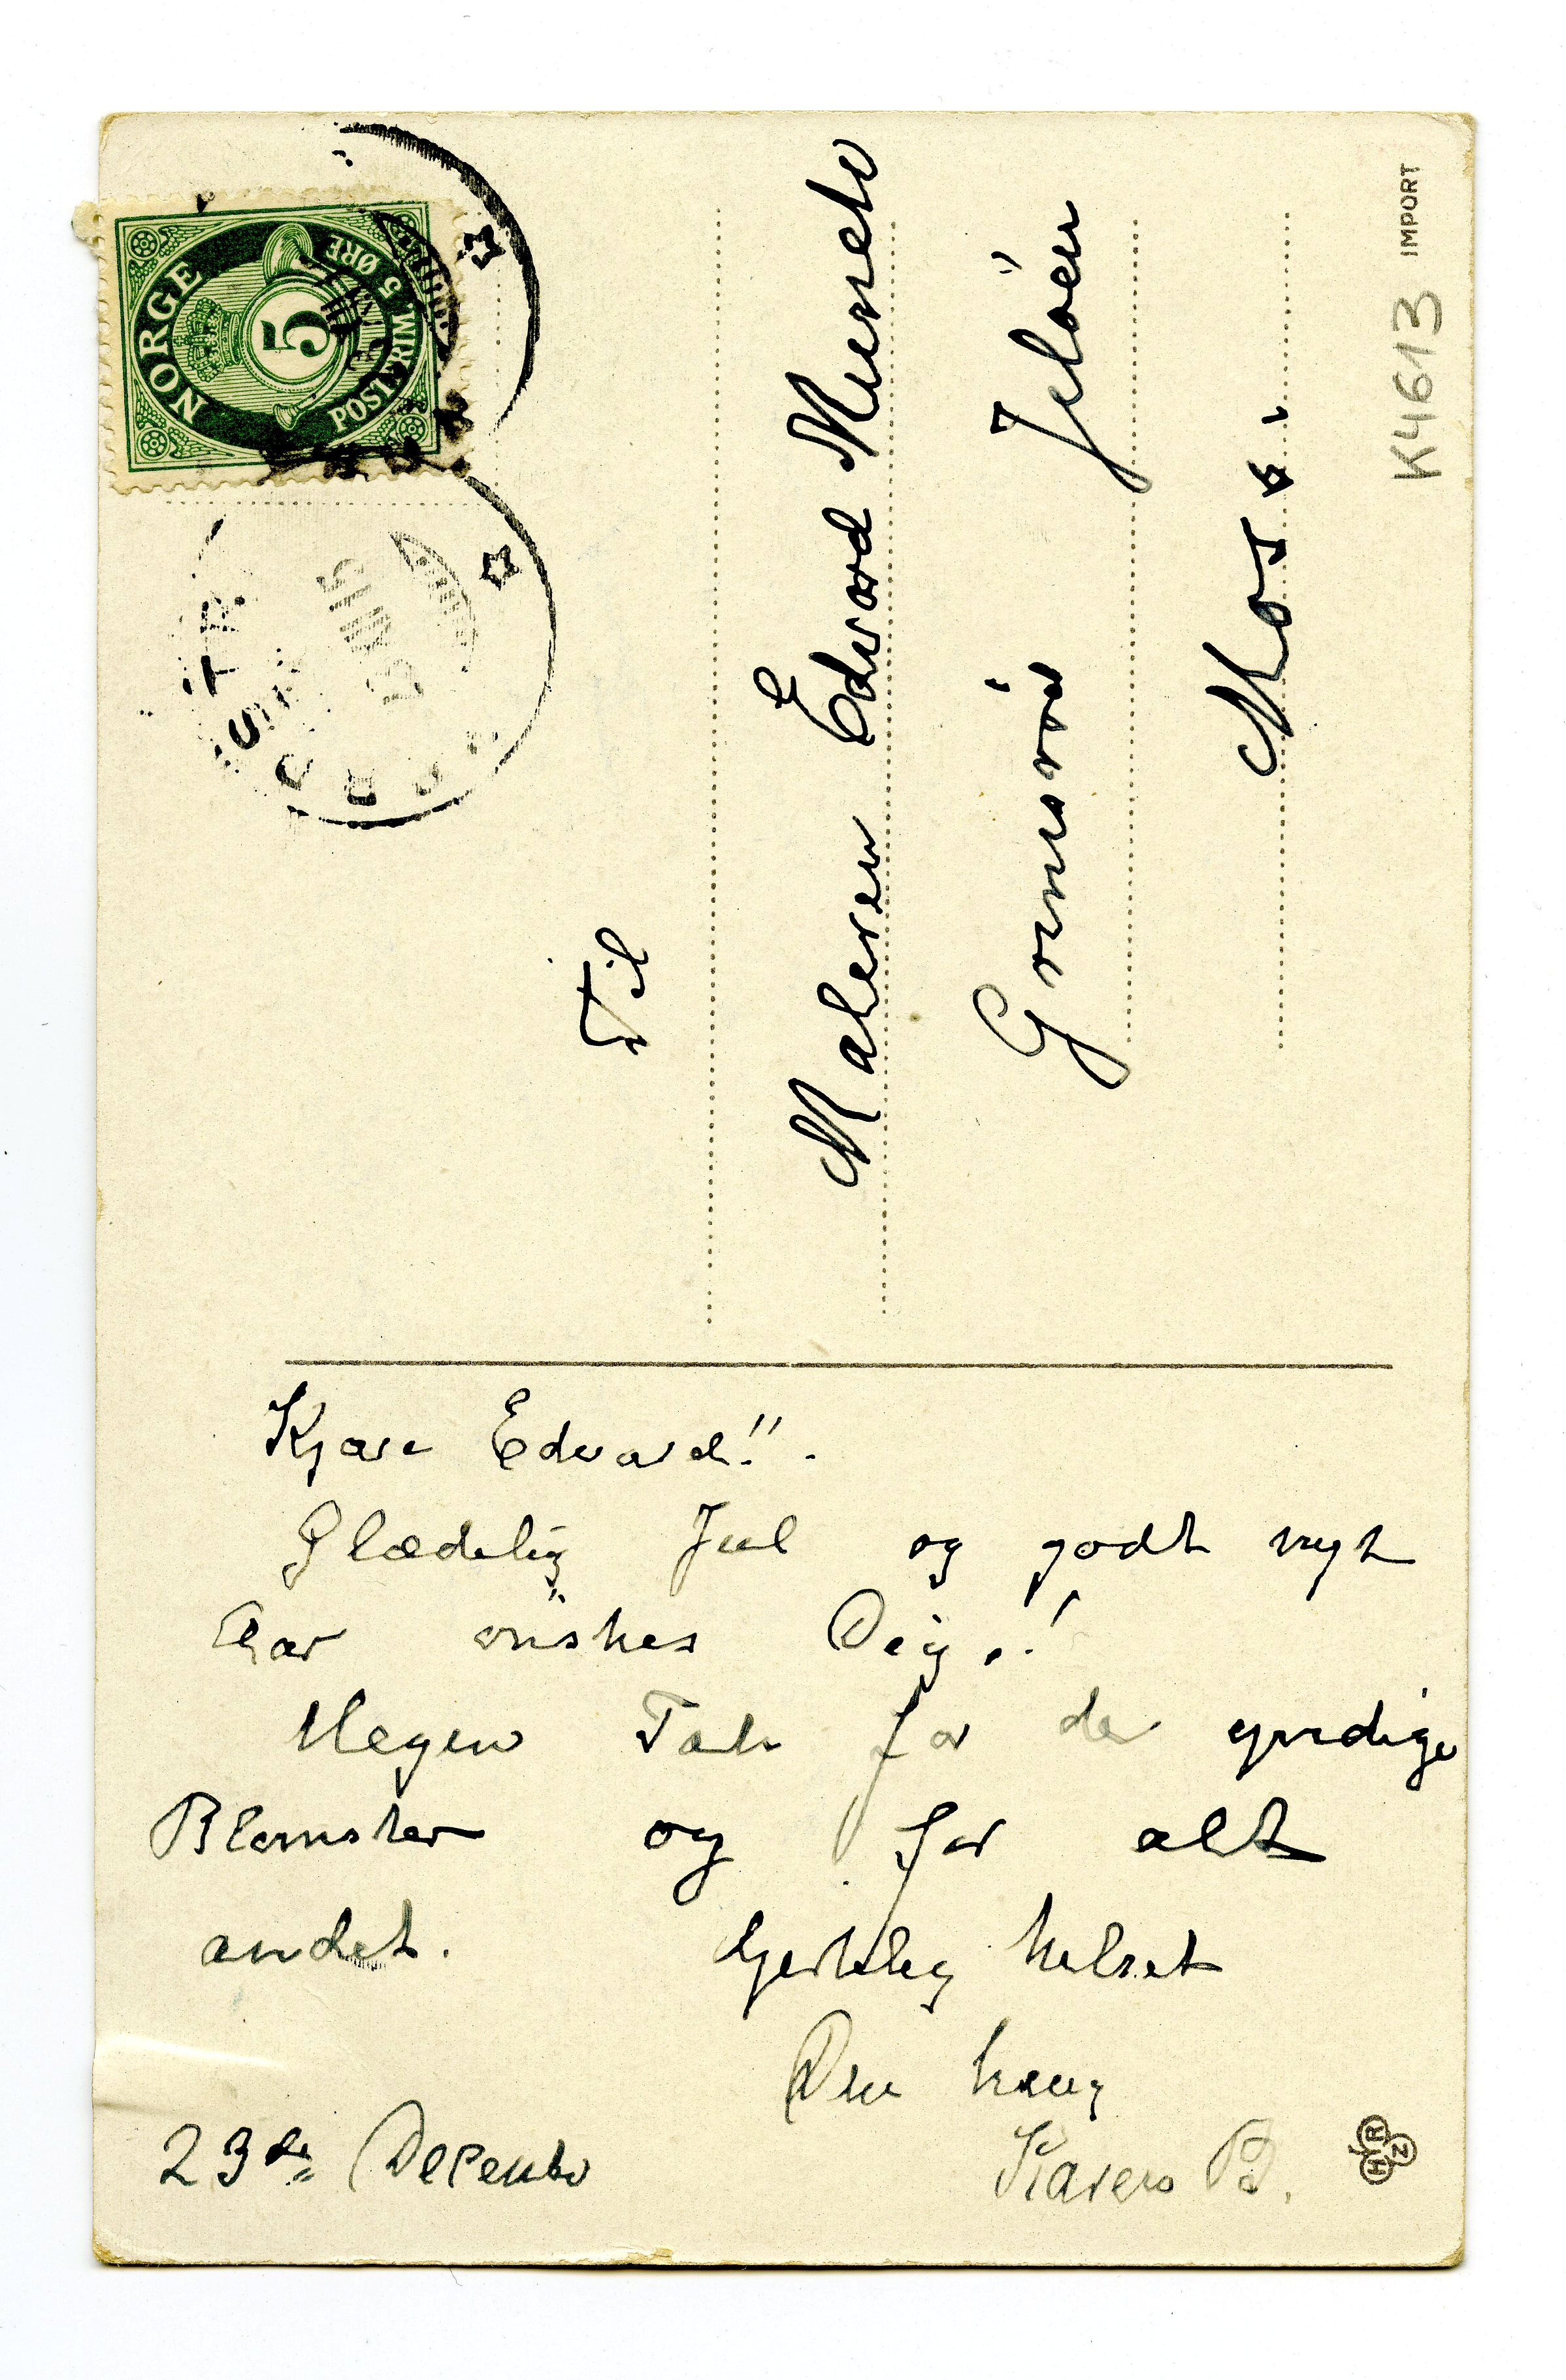 NORGE
5
POSTFRIM 5 ØRE
Til
Maleren Edvard Munch
Grimsrød Jeløen
Moss.
IMPORT
K4613
Kjære Edvard!!.
Glædelig Jul og godt nyt
Aar ønskes Dig.!
Megen Tak for de yndige
Blomster og for alt
andet. Hjertelig hilset
Din heng
Karen B.
23de December
HRZ